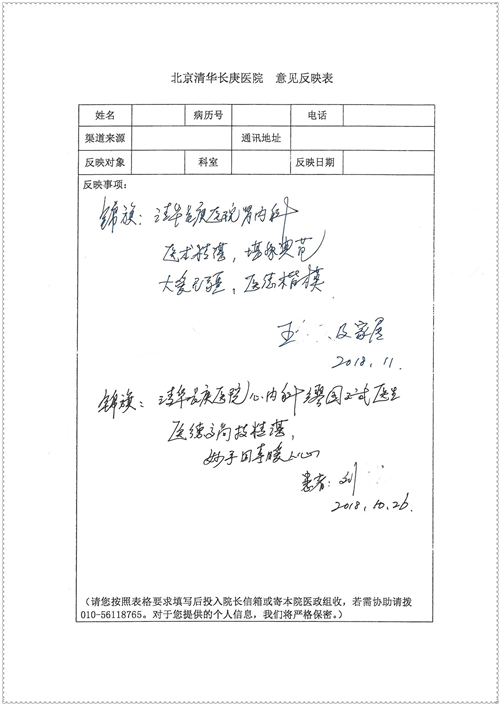 北京清华长庚医院 意见反映表
姓名 病历号 电话
渠道来源 通讯地址
反映对象 科室 反映日期
反映事项：
锦旗：清华长庚医院肾内科
医术精湛，堪称典范
大爱无疆，医德楷模
王 及家属
2018.11.
锦旗：清华长庚医院心内科 国 医生
医德高尚技精湛，
妙手回春暖人心
患者：刘
2018.10.26.
（请您按照表格要求填写后投入院长信箱或寄本院医政组收，若需协助请拨
010-56118765。对于您提供的个人信息，我们将严格保密。）